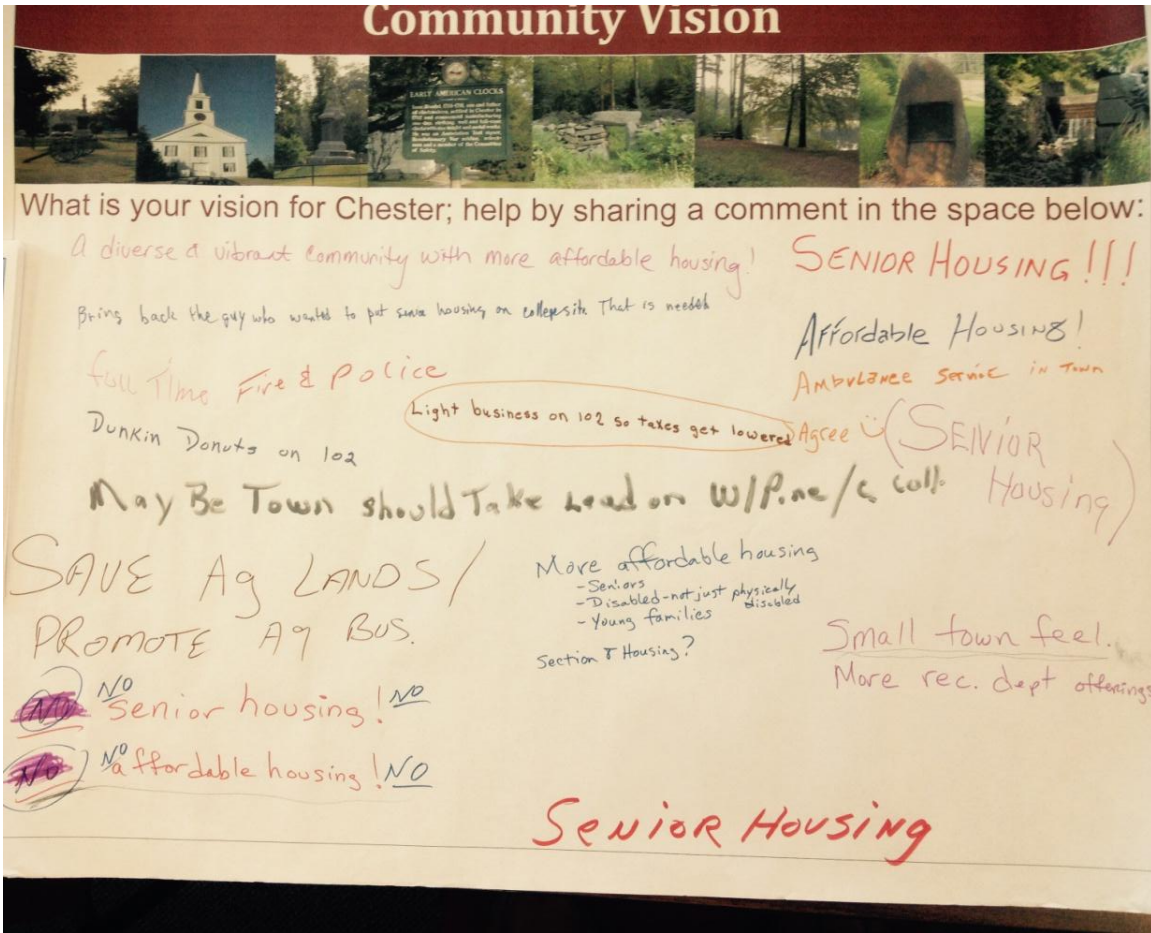 Community Vision
EARLY AMERICAN CLOCKS
What is your vision for Chester; help by sharing a comment in the space below:
A diverse & vibrant community with more affordable housing!
SENIOR HOUSING!!!
Bring back the guy who wanted to put senior housing on college site. That is needed
Affordable Housing!
Full Time Fire & Police
Ambulance Service in Town
Light business on 102 so taxes get lowered
Agree
Dunkin Donuts on 102
(SENIOR
Housing)
May Be Town should Take Lead on W/P.ne/c coll.
SAVE Ag LANDS/
PROMOTE Ag BUS.
More affordable housing
- Seniors
- Disabled - not just physically
disabled
- Young families
Section 8 Housing?
Small town feel.
More rec. dept offerings
NO NO senior housing! NO
NO NO affordable housing! NO
Senior Housing